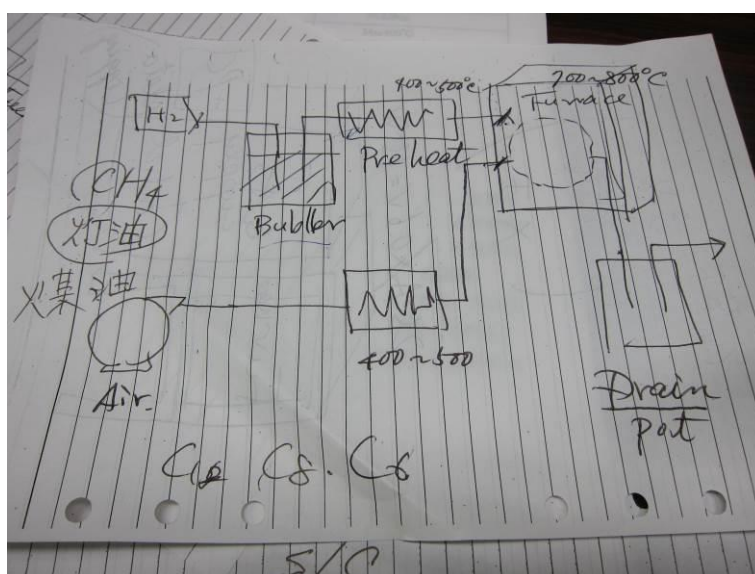 400~500°C
700~800°C
Furnace
H2
Preheat
CH4
Bubller
灯油
煤油
400~500
Air.
Drain
Pot
C12 C8. C6
S/C